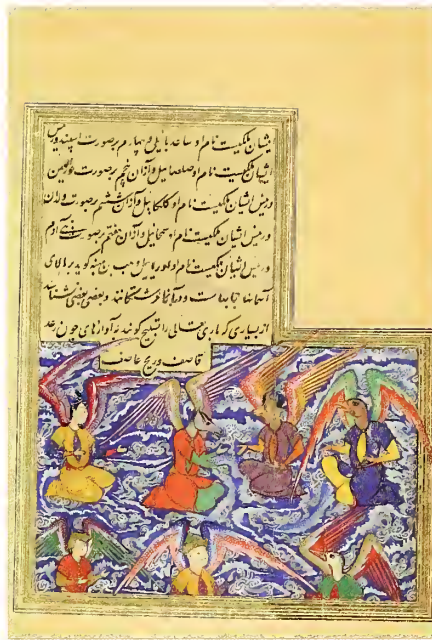 ایشان ملکیست نام او صاعدیاییل و چهارم بر صورت اسپند و رییس
ایشان ملکیست نام او صلصاییل و ازان پنجم بر صورت حورالعین
و رییس ایشان ملکیست نام او کلکاییل و ازان ششم بر صورت ولدان
و رییس ایشان ملکیست نام او سمحاییل و ازان هفتم بر صورت بنی آدم
و رییس ایشان ملکیست نام او نورباییل و وهب بن منبه گوید بر بالای
آسمانها حجابهاست و در آنجا فرشتگانند و بعضی بعضی نشناسند
از بسیاری که باری تعالی را تسبیح گویند به آوازهای چون رعد
قاصف و ریح عاصف